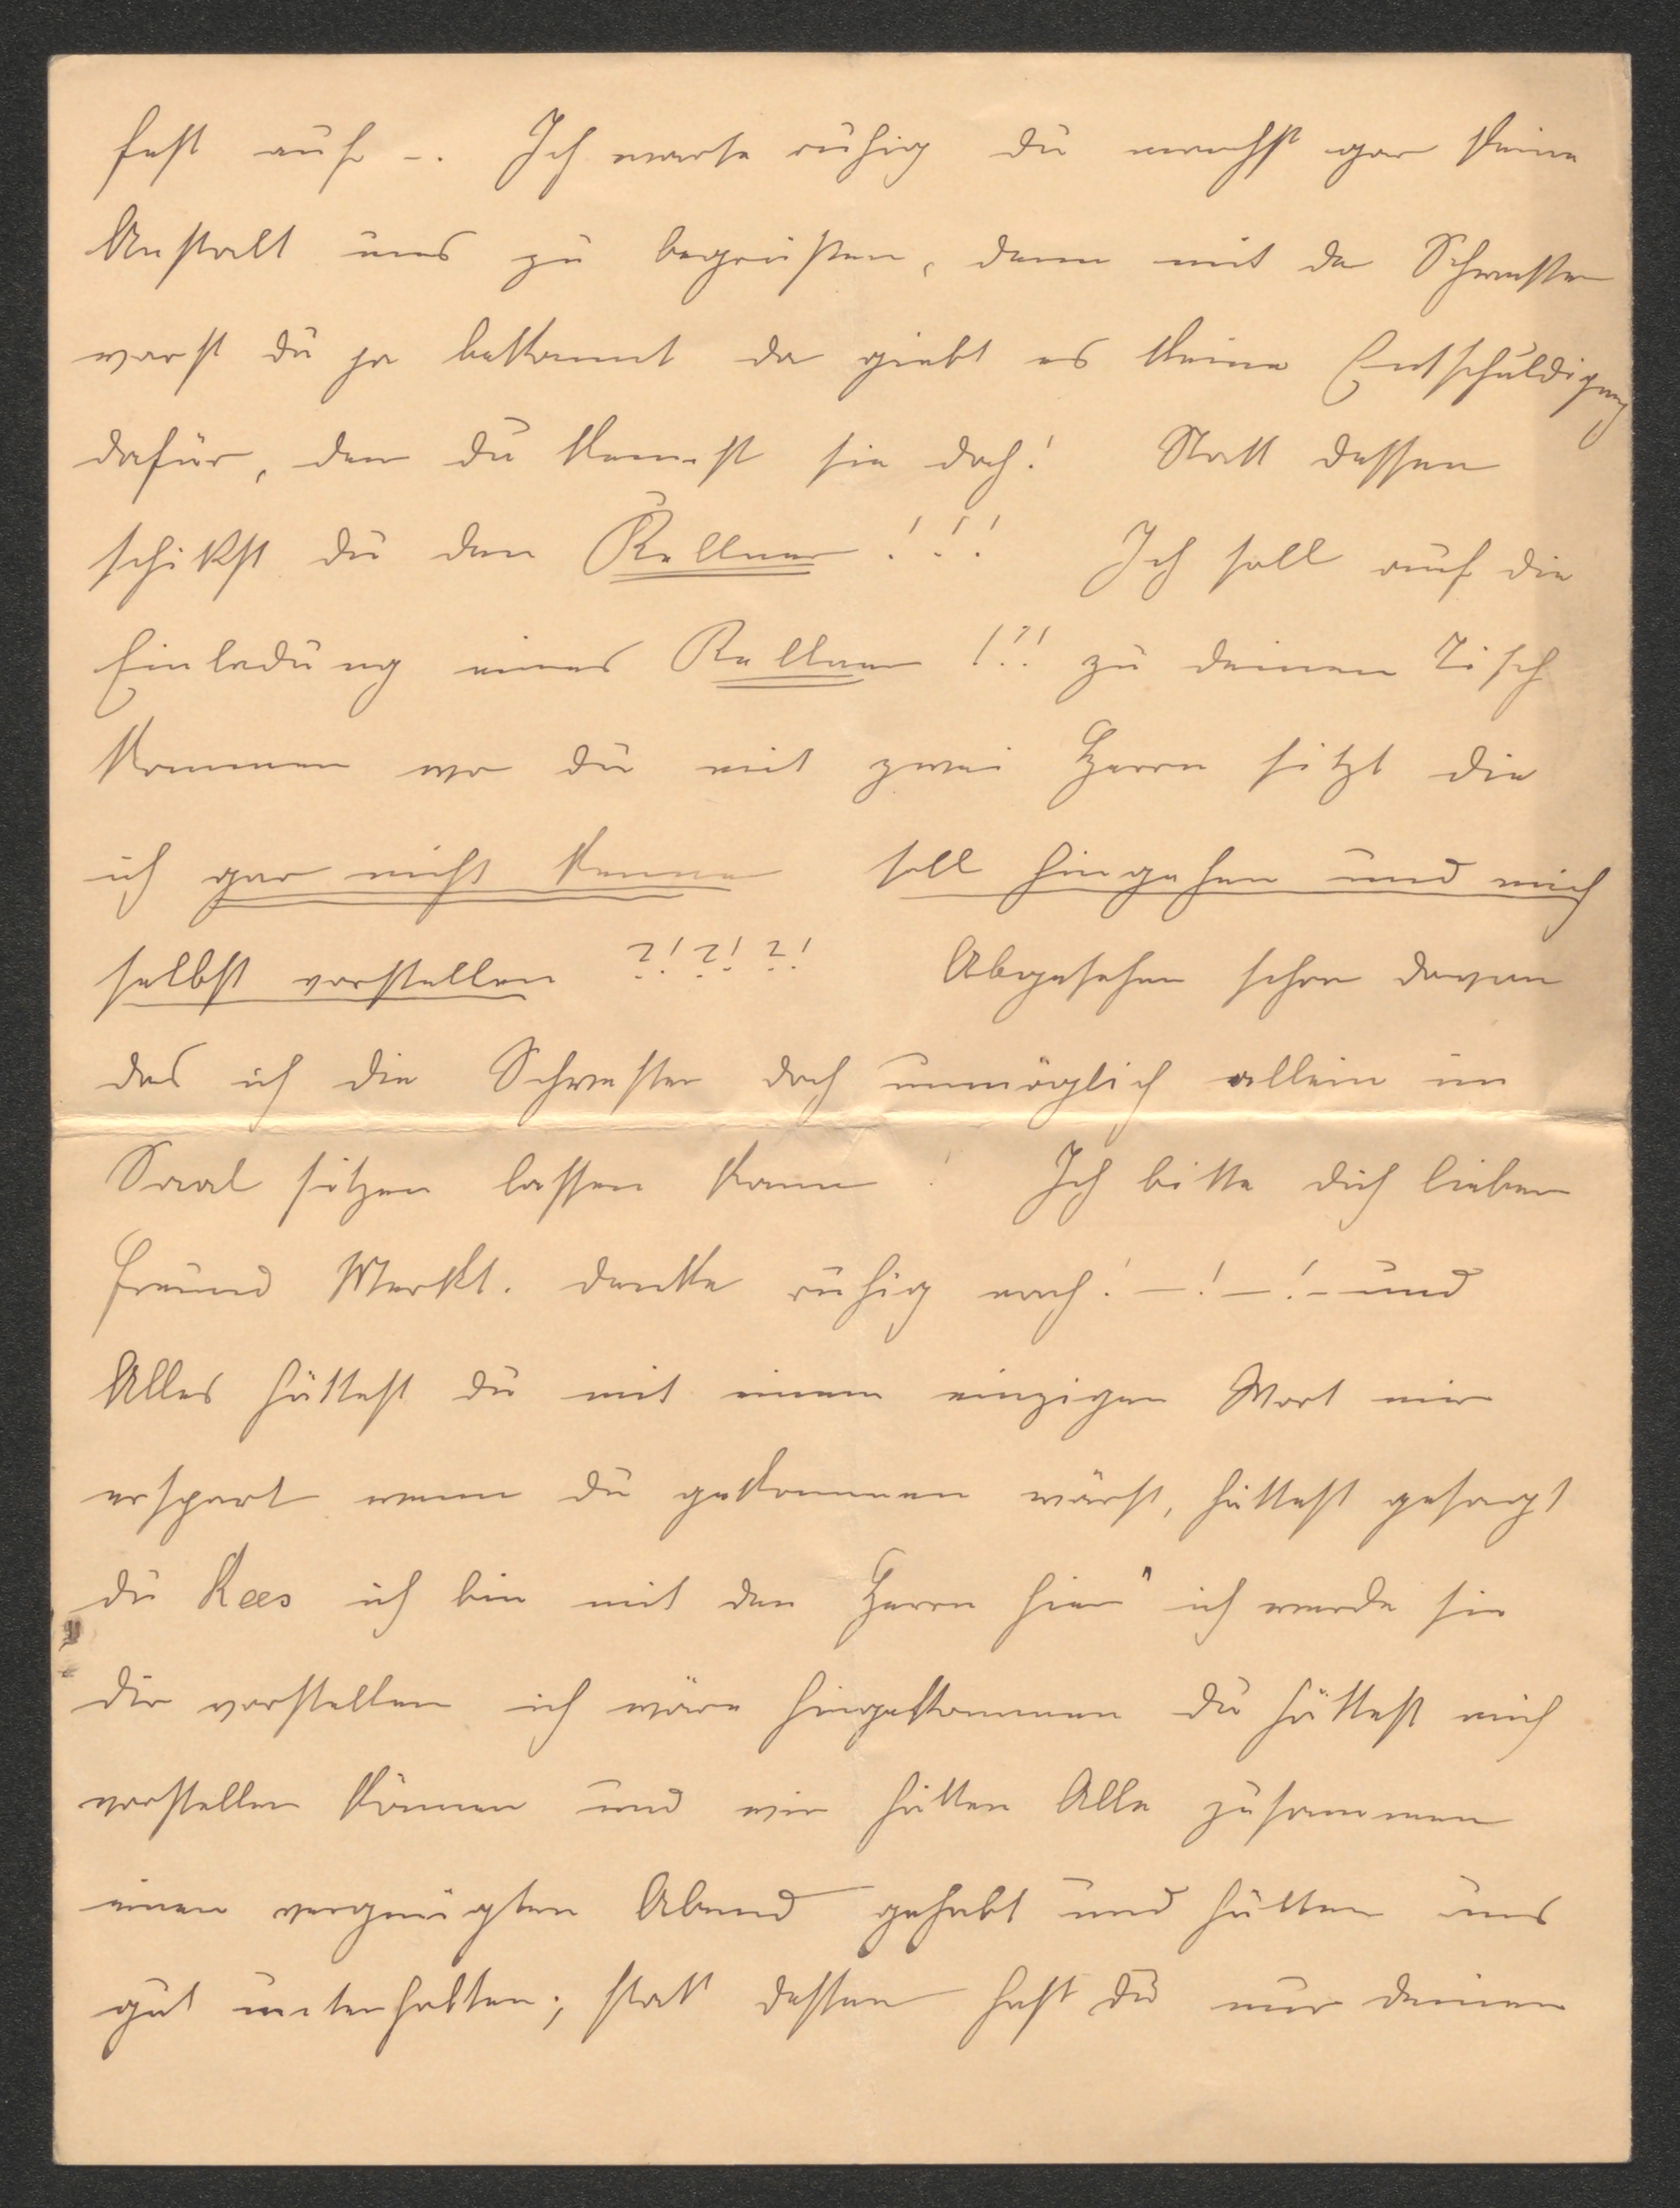 fest auf –. Ich warte ruhig du machst gar keine
Anstalt uns zu begrüßen, denn mit der Schwester
warst du ja bekannt da giebt es keine Entschuldigung
dafür, den du kennst sie doch! Statt dessen
schikst du den Kellner !!! Ich soll auf die
Einladung eines Kellner !?! zu deinen Tisch
kommen wo du mit zwei Herrn sitzt die
ich gar nicht kenne soll hingehen und mich
selbst vorstellen ?!?!?! Abgesehen schon davon
das ich die Schwester doch unmöglich allein im
Saal sitzen lassen kann ! Ich bitte dich lieber
Freund Merkt. denke ruhig nach! – ! – ! – und
Alles hättest du mit einem einzigen Wort mir
erspart wenn du gekommen wärst, hättest gesagt
du Kees ich bin mit den Herrn hier" ich werde sie
dir vorstellen ich wäre hingekommen du hättest mich
vorstellen können und wir hätten Alle zusammen
einen vergnügten Abend gehabt und hätten uns
gut unterhalten; statt dessen hast du nur deinen